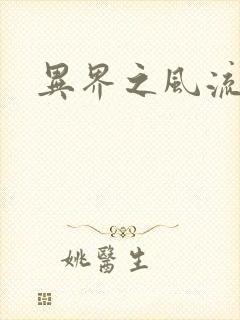 異界之風流
姚醫生